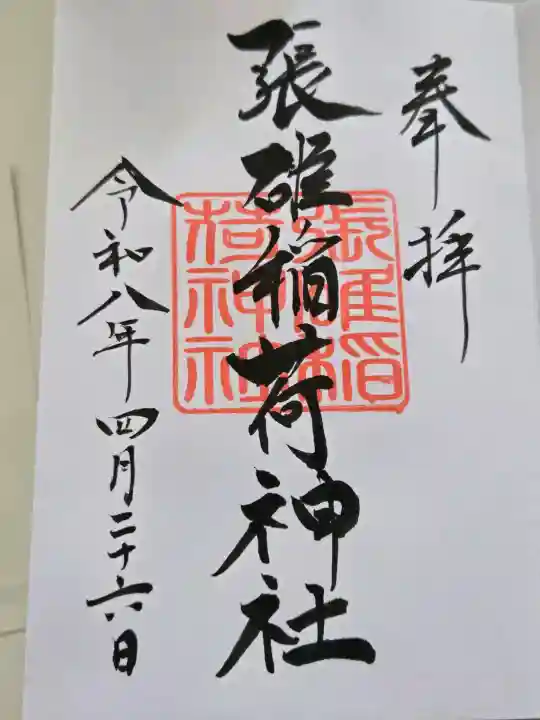 奉拝
張碓稲荷神社
張碓稲
荷神社
令和八年四月二十六日